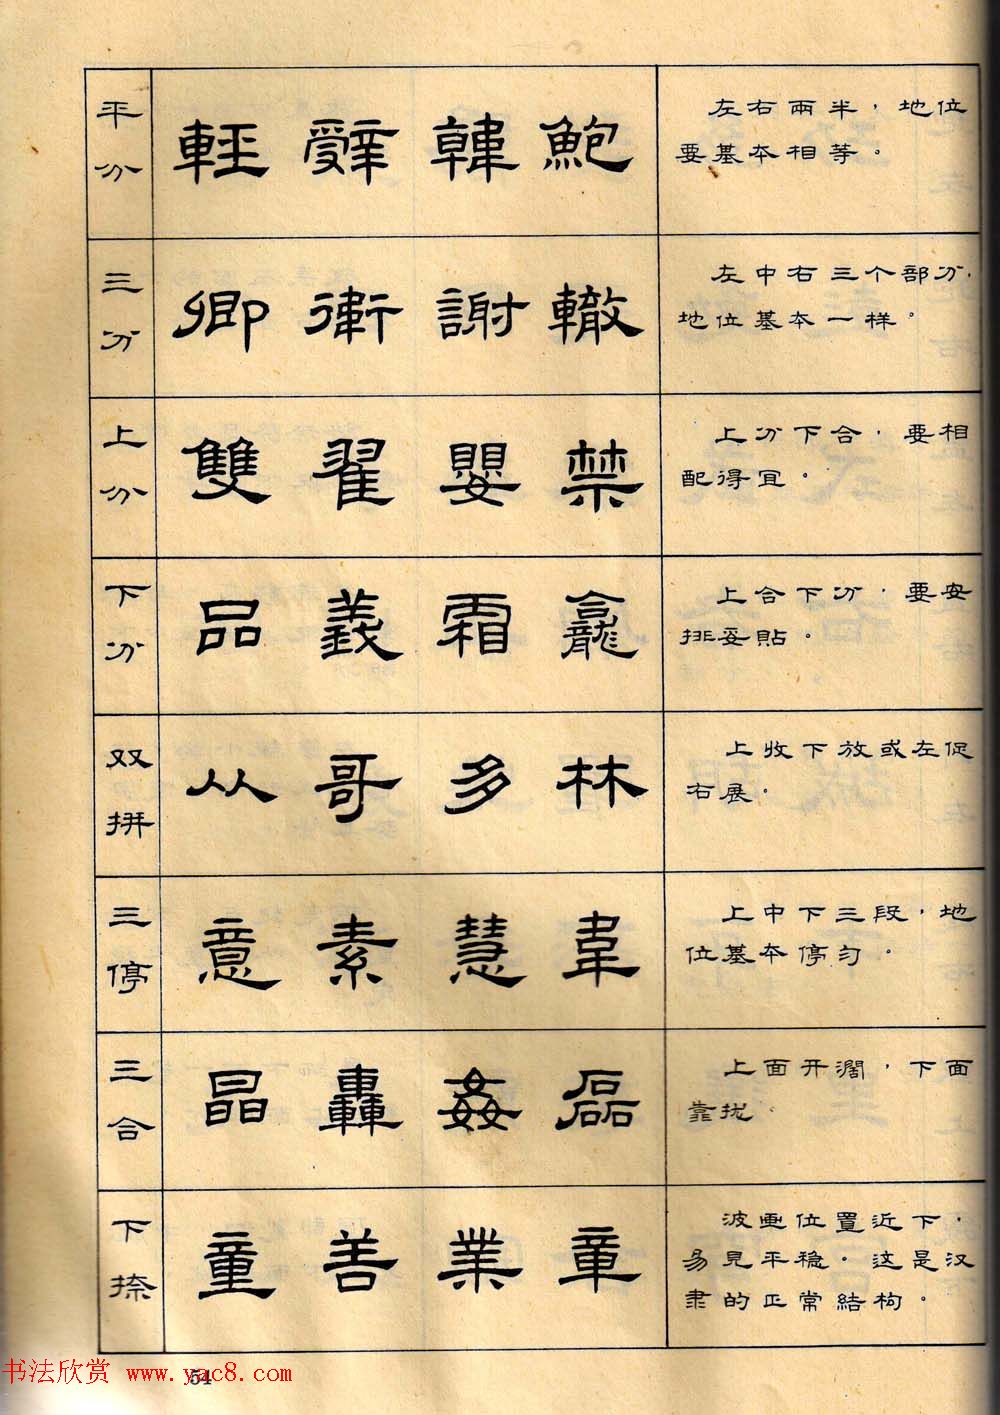 平分
輕 辭 韓 鮑
左右兩半，地位
要基本相等。
三分
卿 衛 謝 轍
左中右三个部分，
地位基本一样。
上分
雙 翟 嬰 禁
上分下合，要相
配得宜。
下分
品 義 霜 龕
上合下分，要安
排妥貼。
双拼
从 哥 多 林
上收下放或左促
右展。
三停
意 素 慧 韋
上中下三段，地
位基本停匀。
三合
晶 轟 姦 磊
上面开濶，下面
靠拢。
下捺
童 善 業 章
波画位置近下，
易見平稳。这是汉
隶的正常結构。
书法欣赏 www.yac8.com
54